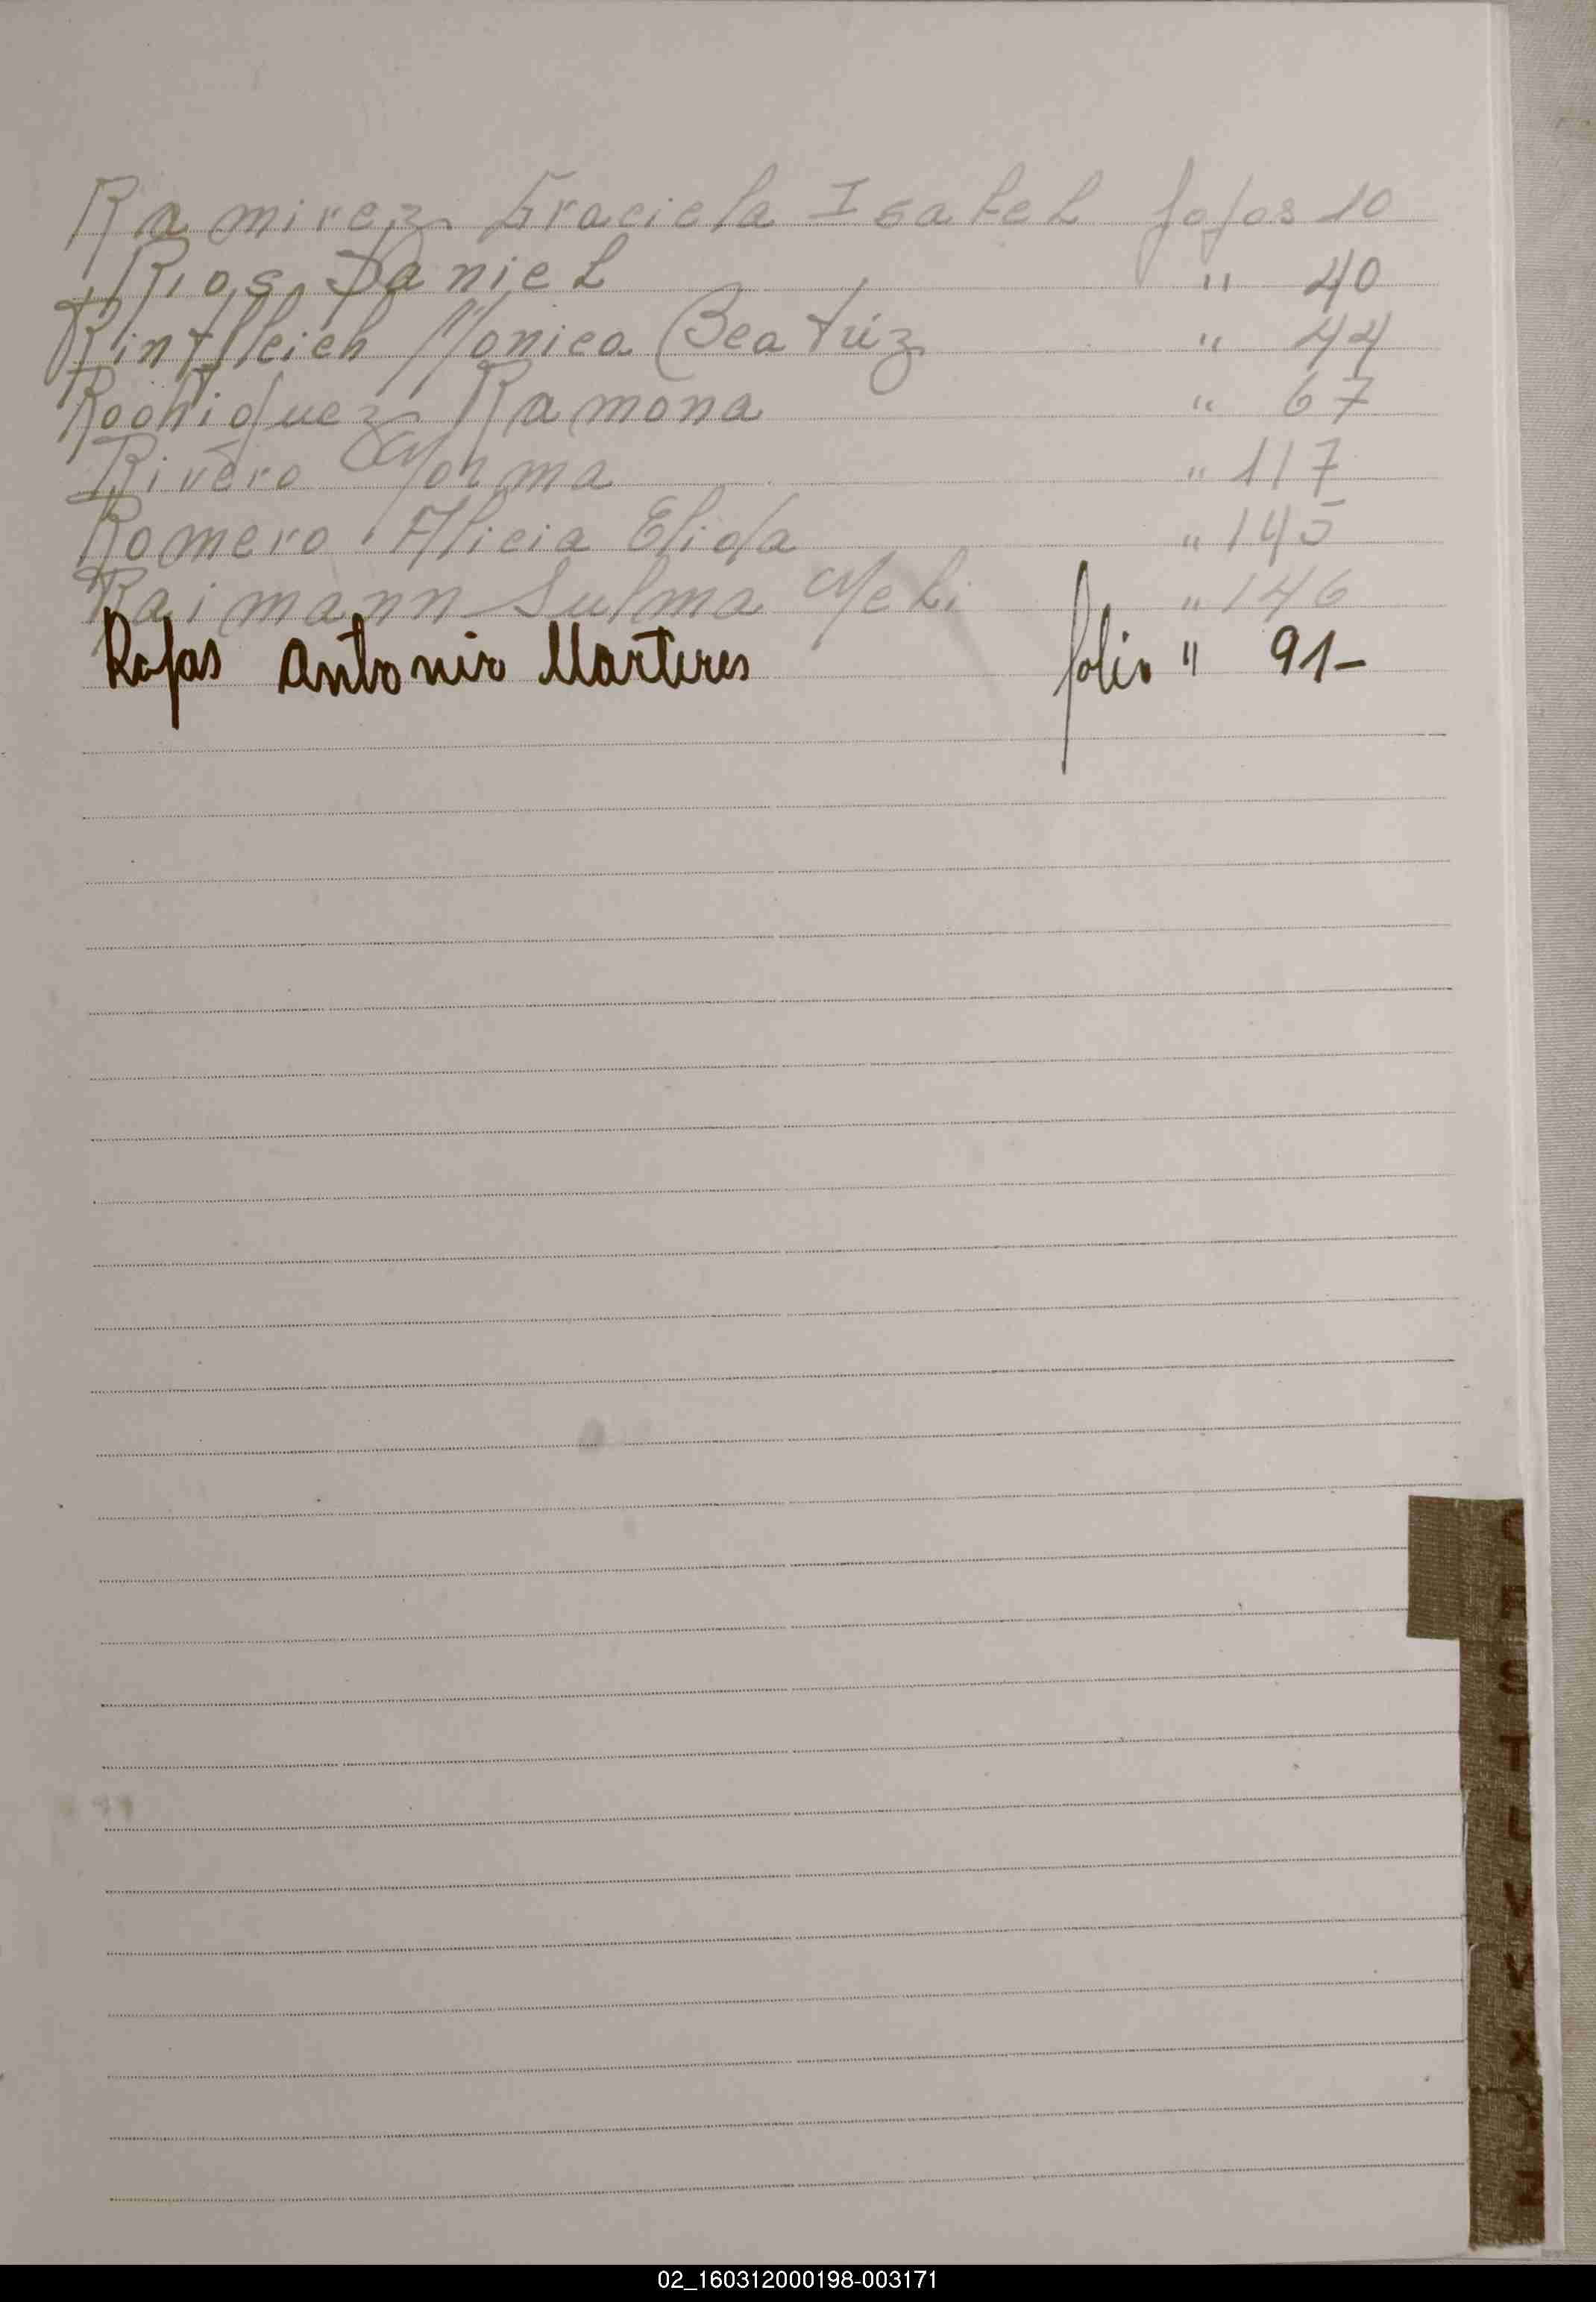 Ramirez Graciela Isabel fojas 10
Rios Daniel " 40
Rintfleich Monica Beatriz " 44
Rodriguez Ramona " 67
Rivero Norma " 117
Romero Alicia Elida " 145
Raimann Sulma Neli " 146
Rojas Antonio Martires folio " 91-
Q
R
S
T
U
V
W
X
Y
Z
02_160312000198-003171